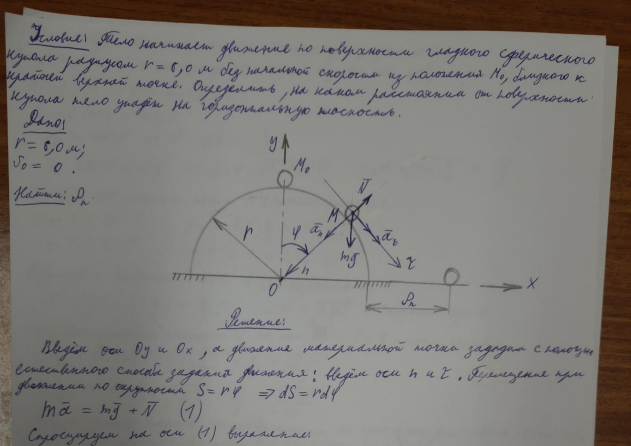 Условие: Тело начинает движение по поверхности гладкого сферического
купола радиусом r = 6,0 м без начальной скорости из положения M₀, близкого к
крайней верхней точке. Определить, на каком расстоянии от поверхности
купола тело упадёт на горизонтальную плоскость.
Дано:
r = 6,0 м;
υ₀ = 0.
Найти: ρₙ
y
M₀
N̄
M
āₙ
ā_τ
r
φ
mḡ
τ
n
O
ρₙ
x
Решение:
Введём оси Oy и Ox, а движение материальной точки зададим с помощью
естественного способа задания движения: Введём оси n и τ. Перемещение при
движении по окружности S = rφ ⇒ dS = rdφ
mā = mḡ + N̄ (1)
Спроецируем на оси (1) выражение: